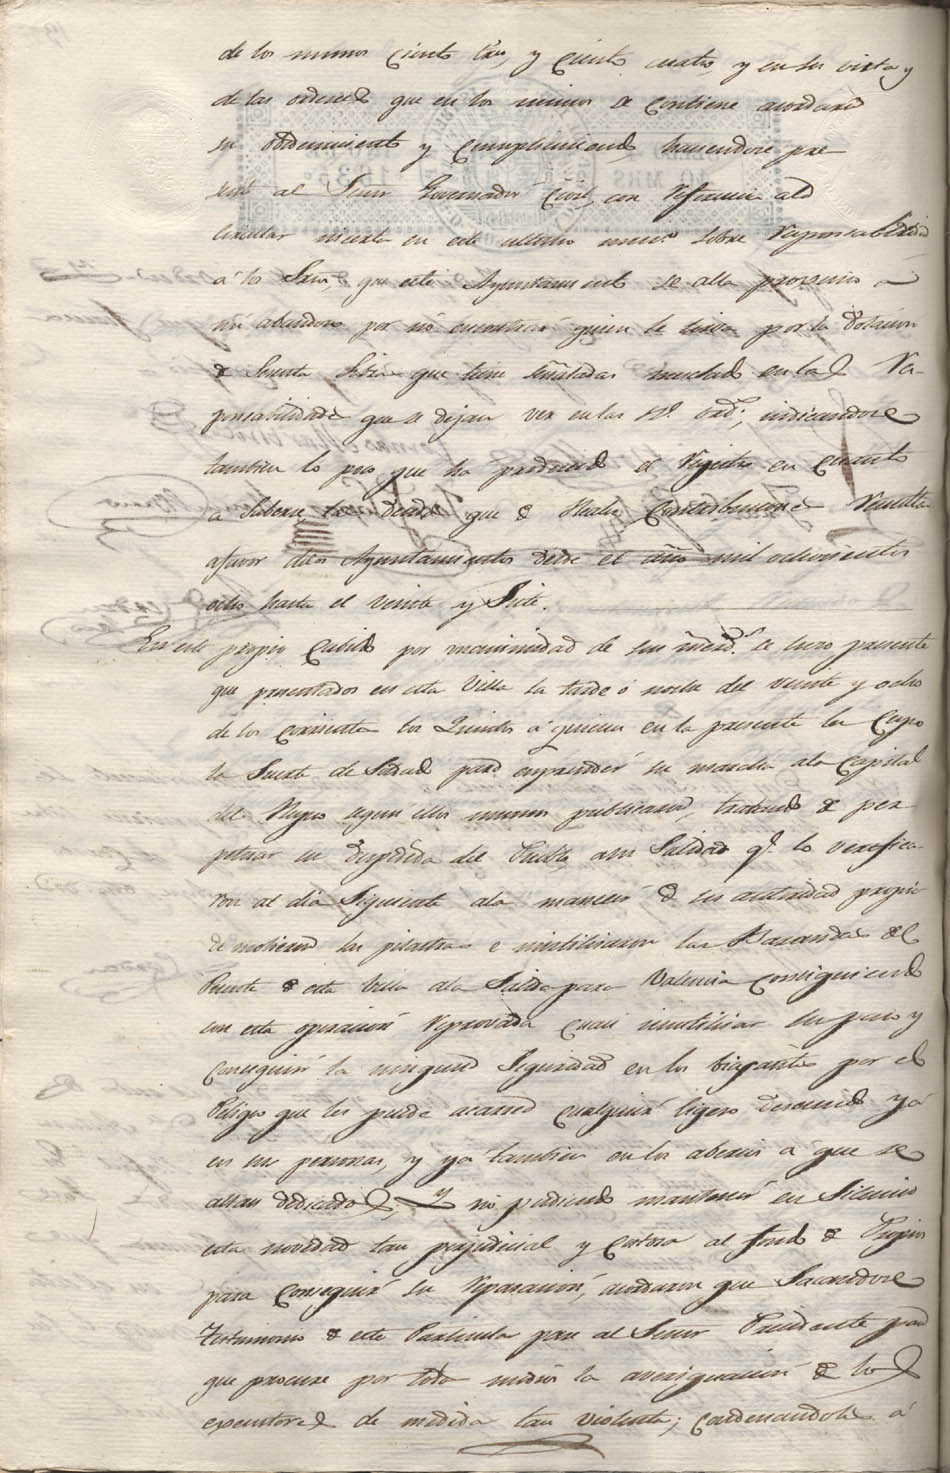 de los numos Ciento tres, y Ciento cuatro, y en su vista y
de las ordenes que en los mismos se Contiene acordaron
su obedecimiento y Cumplimiento, haciendose pre
sente al Señor Governador Civil, con referencia al
Circular inserta en este ultimo numo. sobre Responsabilidad
á los Srios, que este Ayuntamiento se alla proximo a
un abandono por no encontrar quien le sirva por la Dotacion
de que tiene señaladas mercad en las Res-
ponsabilidades que se dejan ver en las Rs. ords; indicandose
tambien lo poco que ha producido el Registro en Cuanto
a Saberse las deudas que de Reales Contribuciones Resulta
afavor de los Ayuntamientos desde el año mil ochocientos
ocho hasta el veinte y Siete.
En este propio Cabildo por unanimidad de sus merds. se hizo presente
que presentados en esta Villa la tarde ó noche del veinte y ocho
de los Corrientes los Quintos á quienes en la presente les Cupo
la Suerte de Soldado para emprender su marcha ala Capital
del Reyno segun ellos mismos publicaron, tratando de per
petuar su Despedida del Pueblo, asu Salida qe. lo verifica-
ron al dia Siguiente ala mañana de su autoridad propia
demolieron las pilastras e inutilizaron las Barandas del
Puente de esta Villa ala Salida para Valencia Consiguiendo
con esta operacion Reprovada Cuasi inutilizar su paso y
Conseguir la ninguna Seguridad en los viajantes por el
Peligro que les puede acarrear cualquier ligero descuido ya
en sus personas, y ya tambien en los aberios á que se
allan dedicados; Y no pudiendo mantener en Silencio
esta novedad tan perjudicial y Costosa al fondo de Propios
para Conseguir su Reparacion, acordaron que Sacandose
Testimonio de este Particular pase al Señor Presidente para
que procure por todos medios la averiguacion de los
executores de medida tan violenta; Condenandoles á